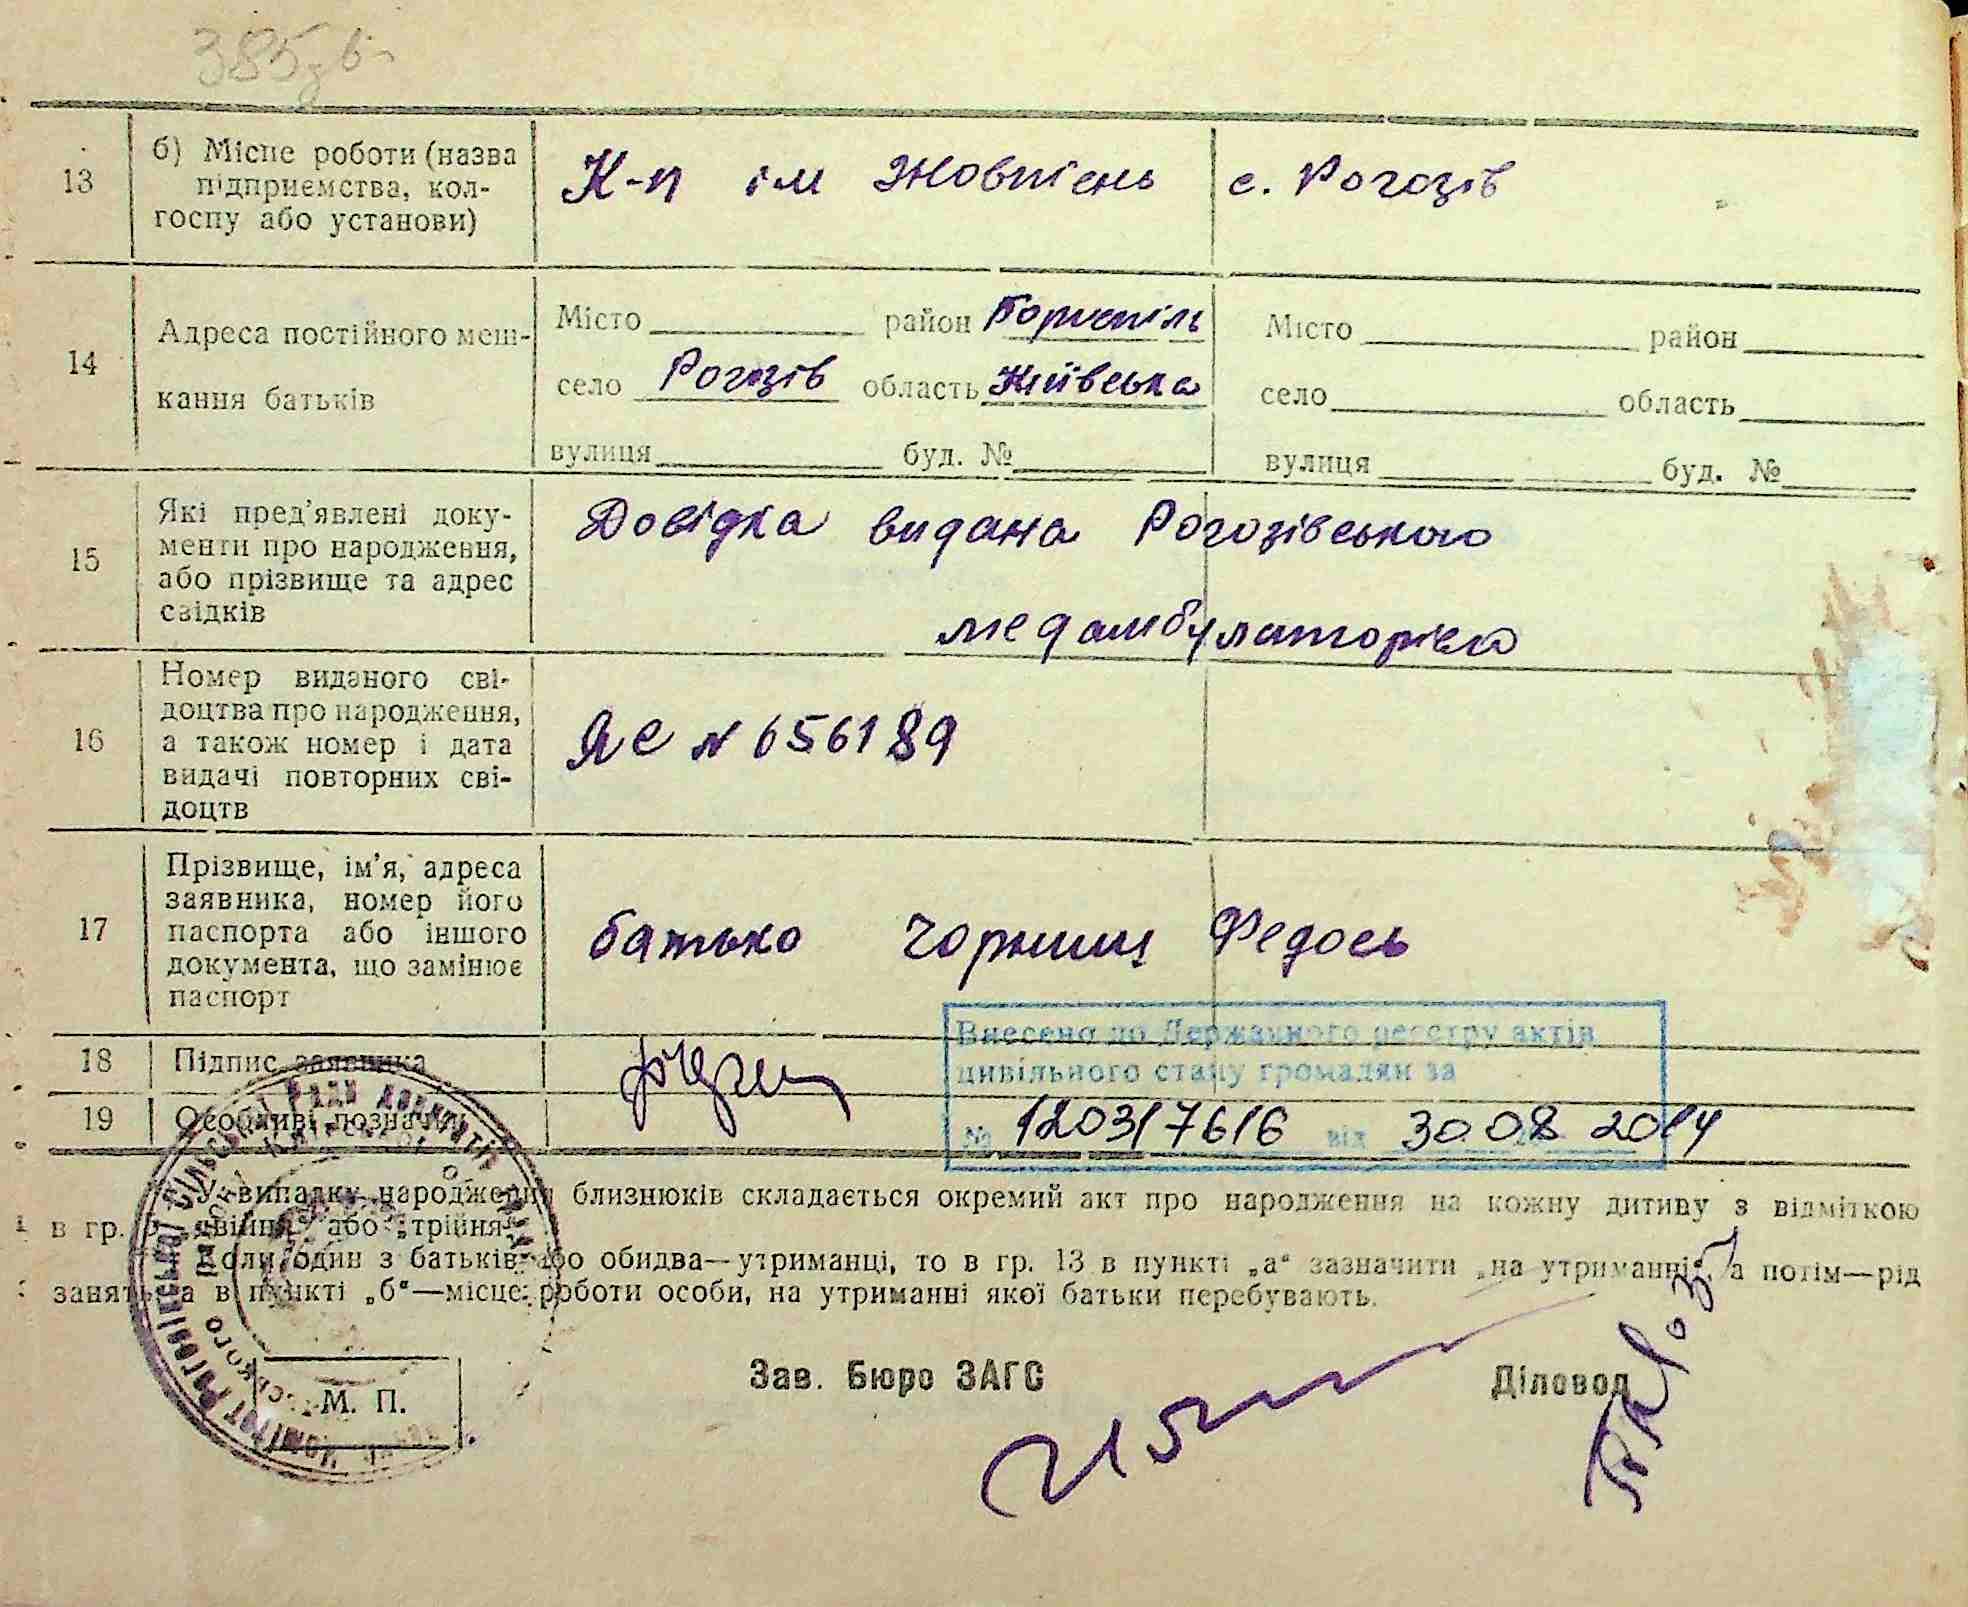 385 зв
13
б) Місце роботи (назва
підприємства, кол-
госпу або установи)
К-п ім Жовтень с. Рогозів
14
Адреса постійного меш-
кання батьків
Місто район Бориспіль
село Рогозів область Київська
вулиця буд. №
Місто район
село область
вулиця буд. №
15
Які пред'явлені доку-
менти про народження,
або прізвище та адрес
свідків
Довідка видана Рогозівською
медамбулаторією
16
Номер виданого сві-
доцтва про народження,
а також номер і дата
видачі повторних сві-
доцтв
ЯС № 656189
17
Прізвище, ім'я, адреса
заявника, номер його
паспорта або іншого
документа, що замінює
паспорт
батько Чорний Федось
18 Підпис заявника
19 Особливі позначки
Внесено до Державного реєстру актів
цивільного стану громадян за
№ 120317616 від 30.08.2014
У випадку народження близнюків складається окремий акт про народження на кожну дитину з відміткою
в гр. „двійня“ або „трійня“.
Коли один з батьків або обидва—утриманці, то в гр. 13 в пункті „а“ зазначити „на утриманні“, а потім—рід
занять, а в пункті „б“—місце роботи особи, на утриманні якої батьки перебувають.
Зав. Бюро ЗАГС Діловод
М. П.